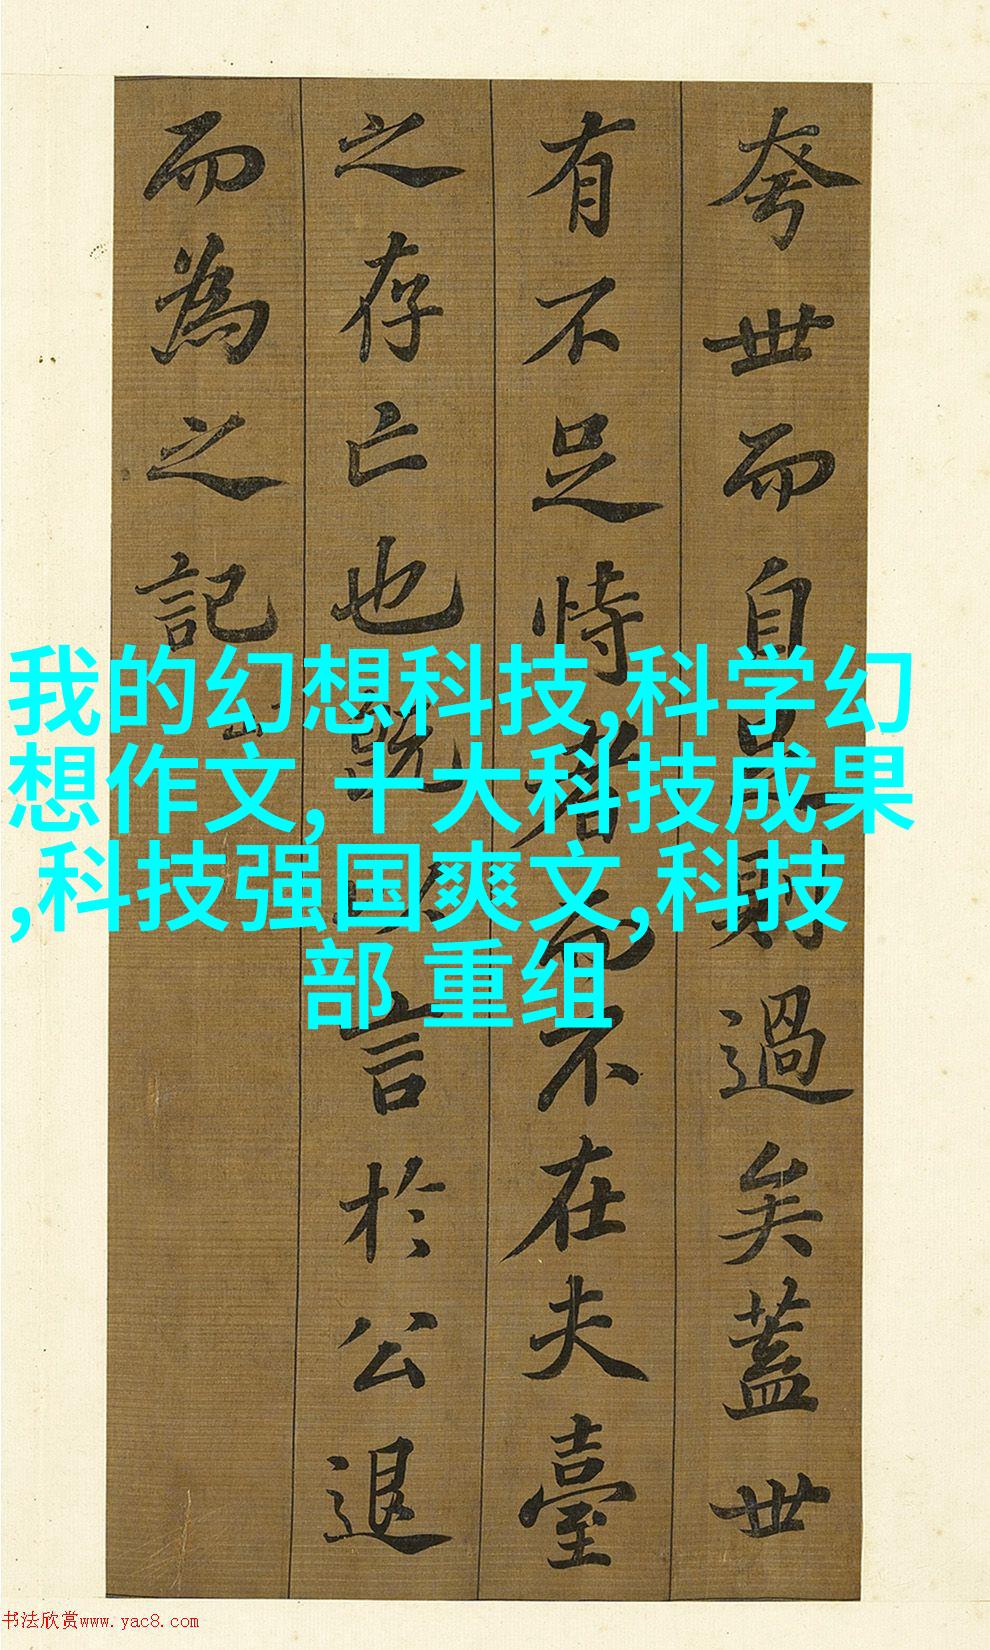 夸世而自足則過矣蓋世
有不足恃者而不在夫臺
之存亡也既以言於公退
而為之記
我的幻想科技,科学幻
想作文,十大科技成果
,科技强国爽文,科技
部 重组
书法欣赏www.yac8.com